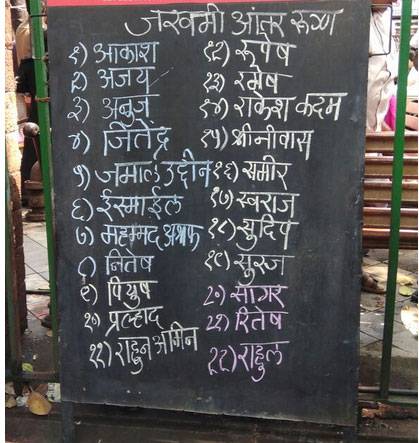 जखमी आंतर रूग्ण
१) आकाश
२) अजय
३) अबुज
४) जितेंद्र
५) जमाल उद्दीन
६) ईस्माईल
७) महामद अश्रफ
८) नितेष
९) पियुष
१०) प्रल्हाद
११) राहुन अमिन
१२) रूपेष
१३) रमेष
१४) राकेश कदम
१५) श्रीनीवास
१६) समीर
१७) स्वराज
१८) सुदिप
१९) सुरज
२०) सागर
२१) रितेष
२२) राहुल